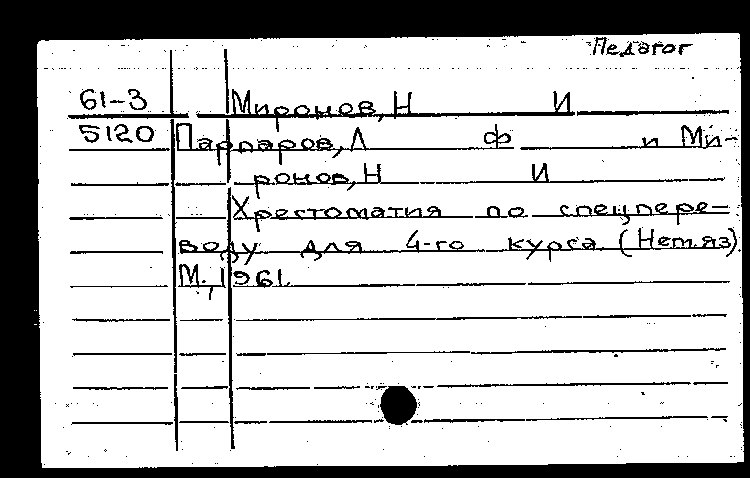 Педагог
61-3 Миронов, Н И
5120 Парпаров, Л Ф и Ми-
ронов, Н И
Хрестоматия по спецпере-
воду для 4-го курса. (Нем.яз)
М., 1961.